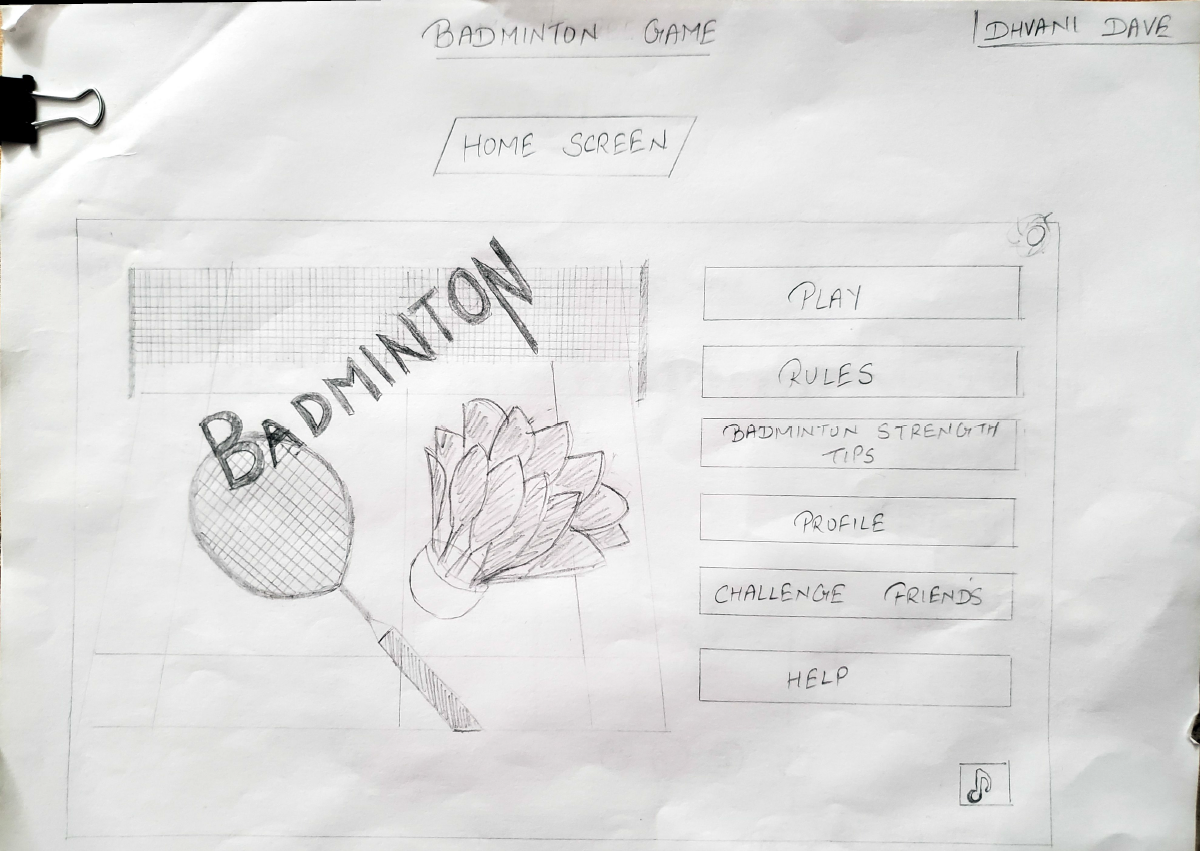 BADMINTON GAME
DHVANI DAVE
HOME SCREEN
BADMINTON
PLAY
RULES
BADMINTON STRENGTH
TIPS
PROFILE
CHALLENGE FRIEND'S
HELP